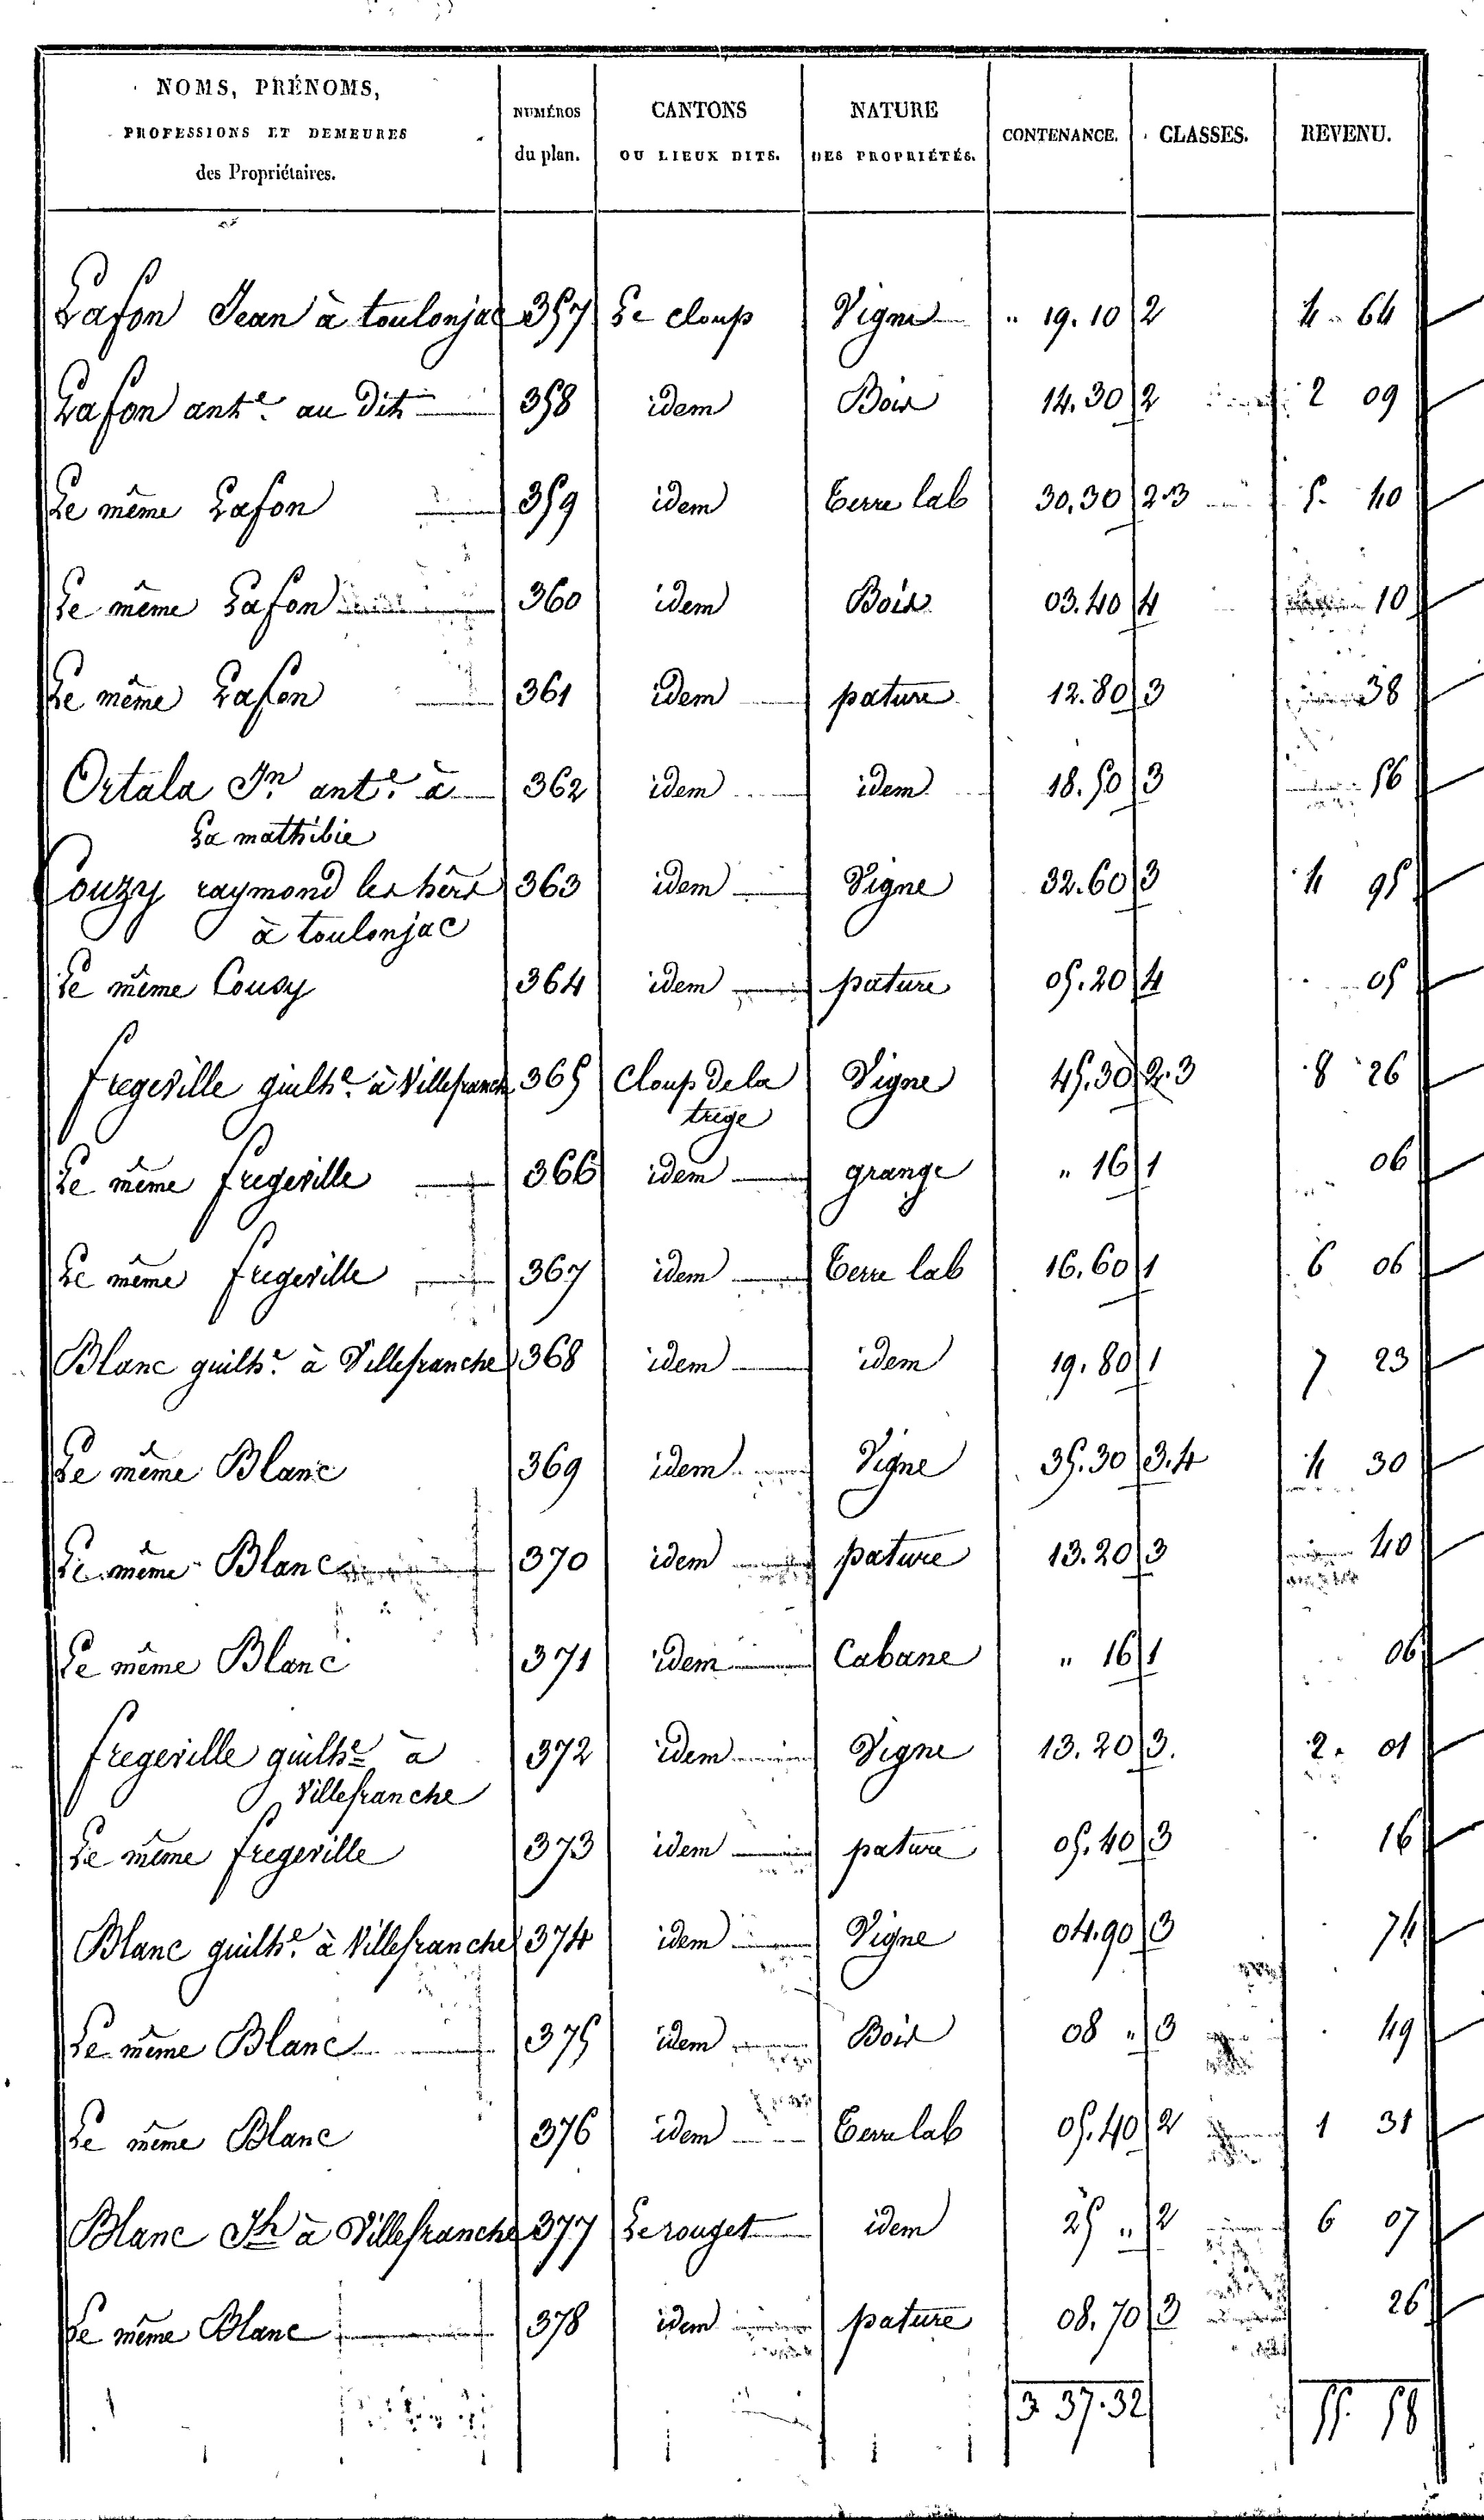 NOMS, PRÉNOMS, PROFESSIONS ET DEMEURES des Propriétaires. | NUMÉROS du plan. | CANTONS OU LIEUX DITS. | NATURE DES PROPRIÉTÉS. | CONTENANCE. | CLASSES. | REVENU.
Lafon Jean à toulonjac 357 Le cloup Vigne " 19.10 2 4 64
Lafon ante. au dit 358 idem Bois 14.30 2 2 09
Le même Lafon 359 idem Terre lab 30.30 2.3 5 40
Le même Lafon 360 idem Bois 03.40 4 10
Le même Lafon 361 idem pature 12.80 3 38
Ortala Jn. ante. à 362 idem idem 18.50 3 56
La mathibie
Couzy raymond les hérs 363 idem Vigne 32.60 3 4 95
à toulonjac
Le même Cousy 364 idem pature 05.20 4 05
fregeville guilhe. à Villefranche 365 Cloup de la Vigne 45.30 2.3 8 26
trege
Le même fregeville 366 idem grange " 16 1 06
Le même fregeville 367 idem Terre lab 16.60 1 6 06
Blanc guilhe. à Villefranche 368 idem idem 19.80 1 7 23
Le même Blanc 369 idem Vigne 35.30 3.4 4 30
Le même Blanc 370 idem pature 13.20 3 40
Le même Blanc 371 idem Cabane " 16 1 06
fregeville guilhe à 372 idem Vigne 13.20 3. 2 01
Villefranche
Le même fregeville 373 idem pature 05.40 3 16
Blanc guilhe. à Villefranche 374 idem Vigne 04.90 3 74
Le même Blanc 375 idem Bois 08 " 3 49
Le même Blanc 376 idem Terre lab 05.40 2 1 31
Blanc Jh à Villefranche 377 Le rouget idem 25 " 2 6 07
Le même Blanc 378 idem pature 08.70 3 26
3 37.32 55 58